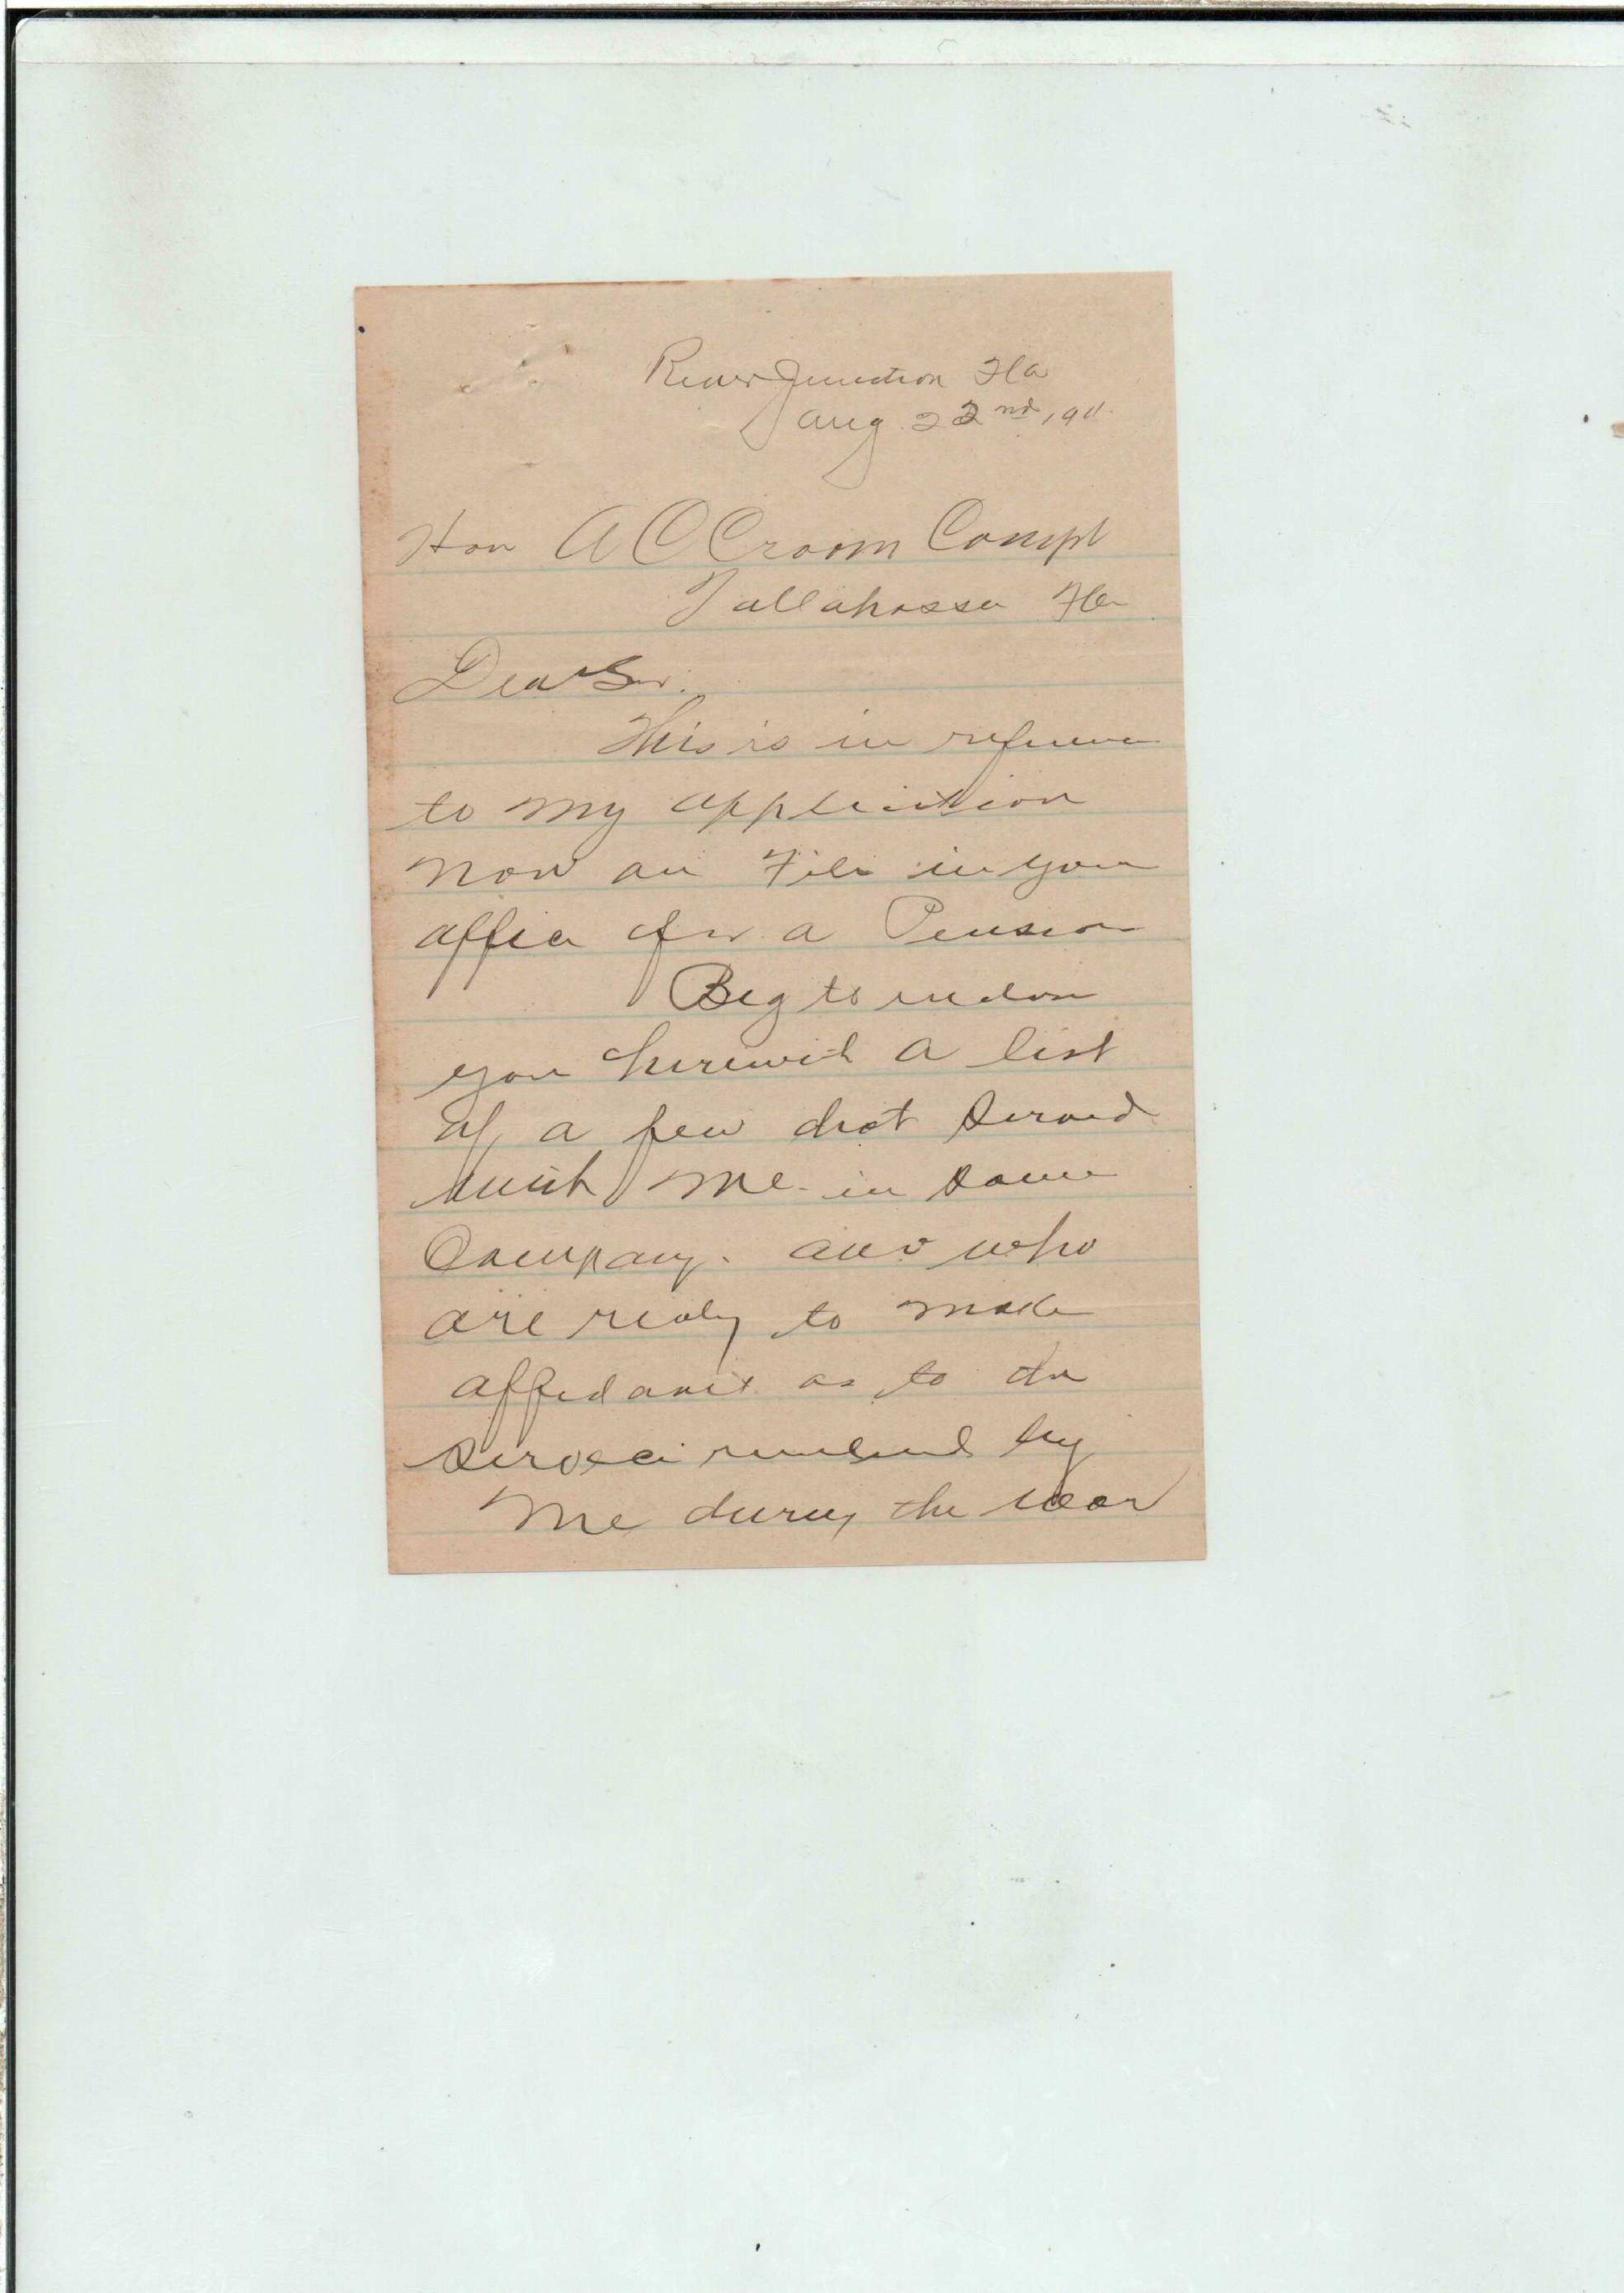 River Junction Fla
Aug 22nd, 1911.
Hon A C Croom Compt
Tallahassee Fla
Dear Sir.
This is in reference
to my application
now on File in your
office for a Pension
Beg to enclose
you herewith a list
of a few that served
with me in same
Company. and who
are ready to make
affidavit as to the
service rendered by
me during the war